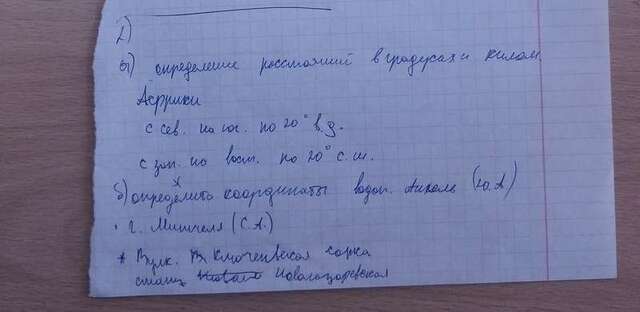 1)
а) определение расстояний в градусах и килом.
Африки
с сев. на юг. по 20° в.д.
с зап. на вост. по 20° с.ш.
б) определить координаты водоп. Анхель (Ю.А)
• г. Митчелл (С.А.)
* Вулк. Ключевская сопка
станц Новолазаревская